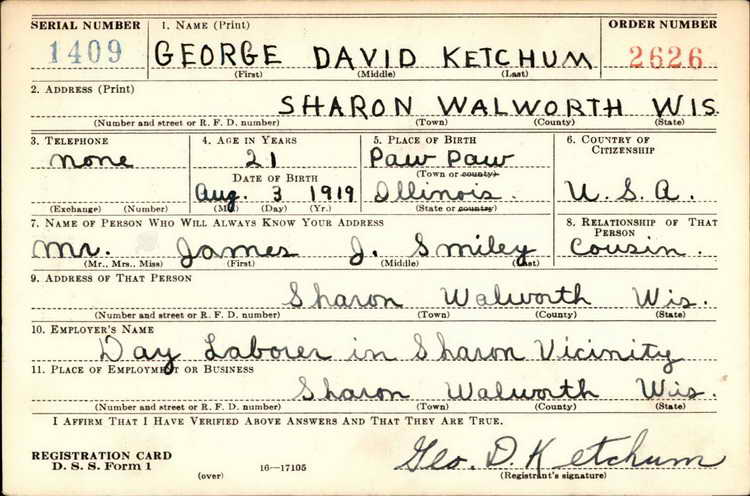 SERIAL NUMBER 1. NAME (Print) ORDER NUMBER
1409 GEORGE DAVID KETCHUM 2626
(First) (Middle) (Last)
2. ADDRESS (Print)
SHARON WALWORTH WIS.
(Number and street or R. F. D. number) (Town) (County) (State)
3. TELEPHONE 4. AGE IN YEARS 5. PLACE OF BIRTH 6. COUNTRY OF CITIZENSHIP
none 21 Paw Paw
DATE OF BIRTH (Town or county)
Aug. 3 1919 Illinois. U. S. A.
(Exchange) (Number) (Mo.) (Day) (Yr.) (State or country)
7. NAME OF PERSON WHO WILL ALWAYS KNOW YOUR ADDRESS 8. RELATIONSHIP OF THAT PERSON
Mr. James J. Smiley Cousin.
(Mr., Mrs., Miss) (First) (Middle) (Last)
9. ADDRESS OF THAT PERSON
Sharon Walworth Wis.
(Number and street or R. F. D. number) (Town) (County) (State)
10. EMPLOYER'S NAME
Day Laborer in Sharon Vicinity
11. PLACE OF EMPLOYMENT OR BUSINESS
Sharon Walworth Wis.
(Number and street or R. F. D. number) (Town) (County) (State)
I AFFIRM THAT I HAVE VERIFIED ABOVE ANSWERS AND THAT THEY ARE TRUE.
REGISTRATION CARD
D. S. S. Form 1 (over) 16—17105 Geo. D. Ketchum
(Registrant's signature)